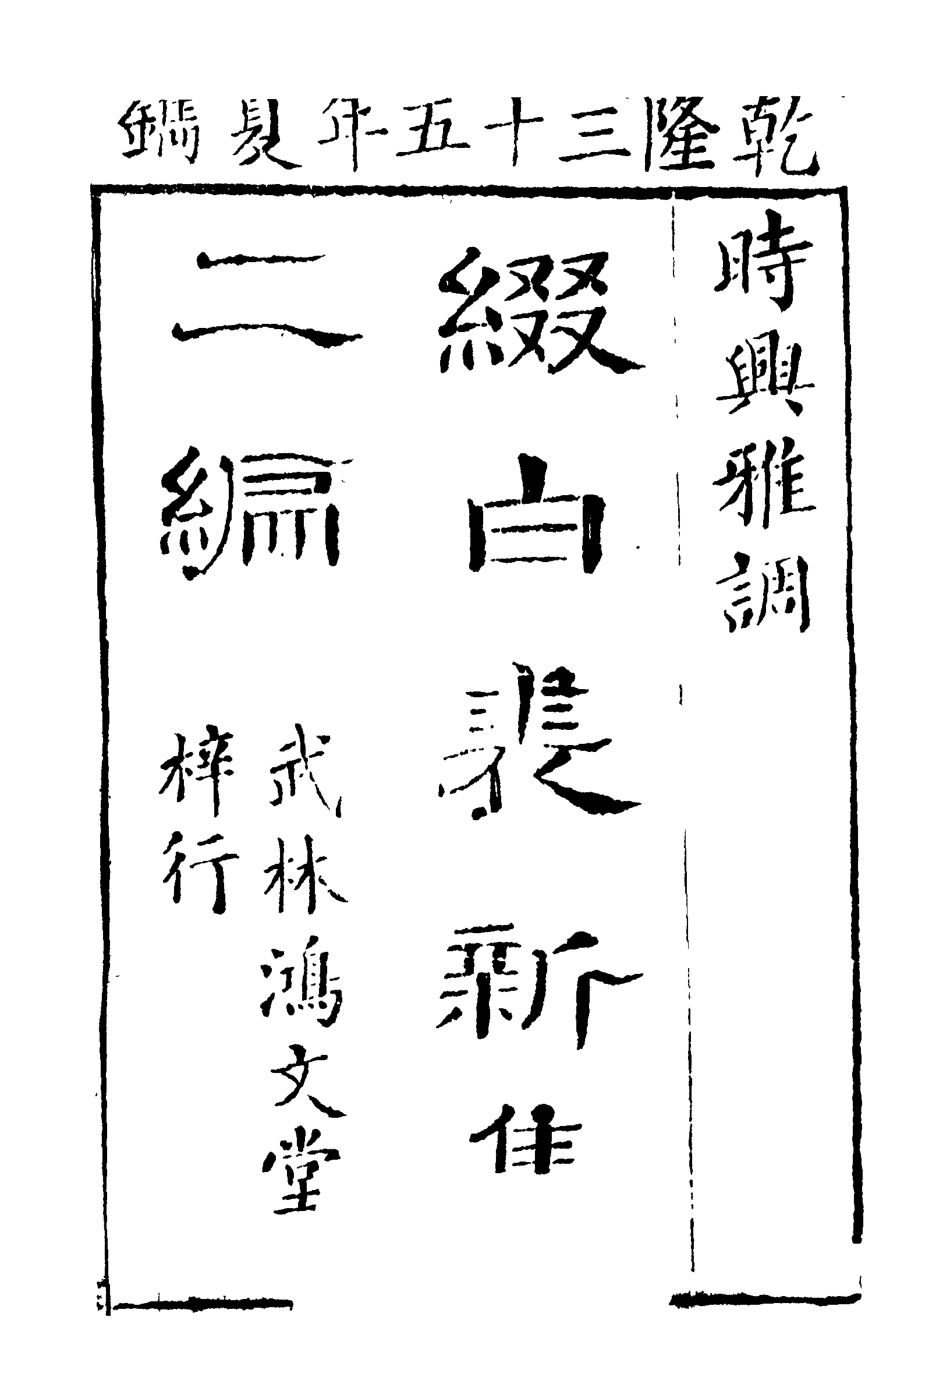 乾隆三十五年夏鐫
時興雅調
綴白裘新集
二編
武林鴻文堂
梓行